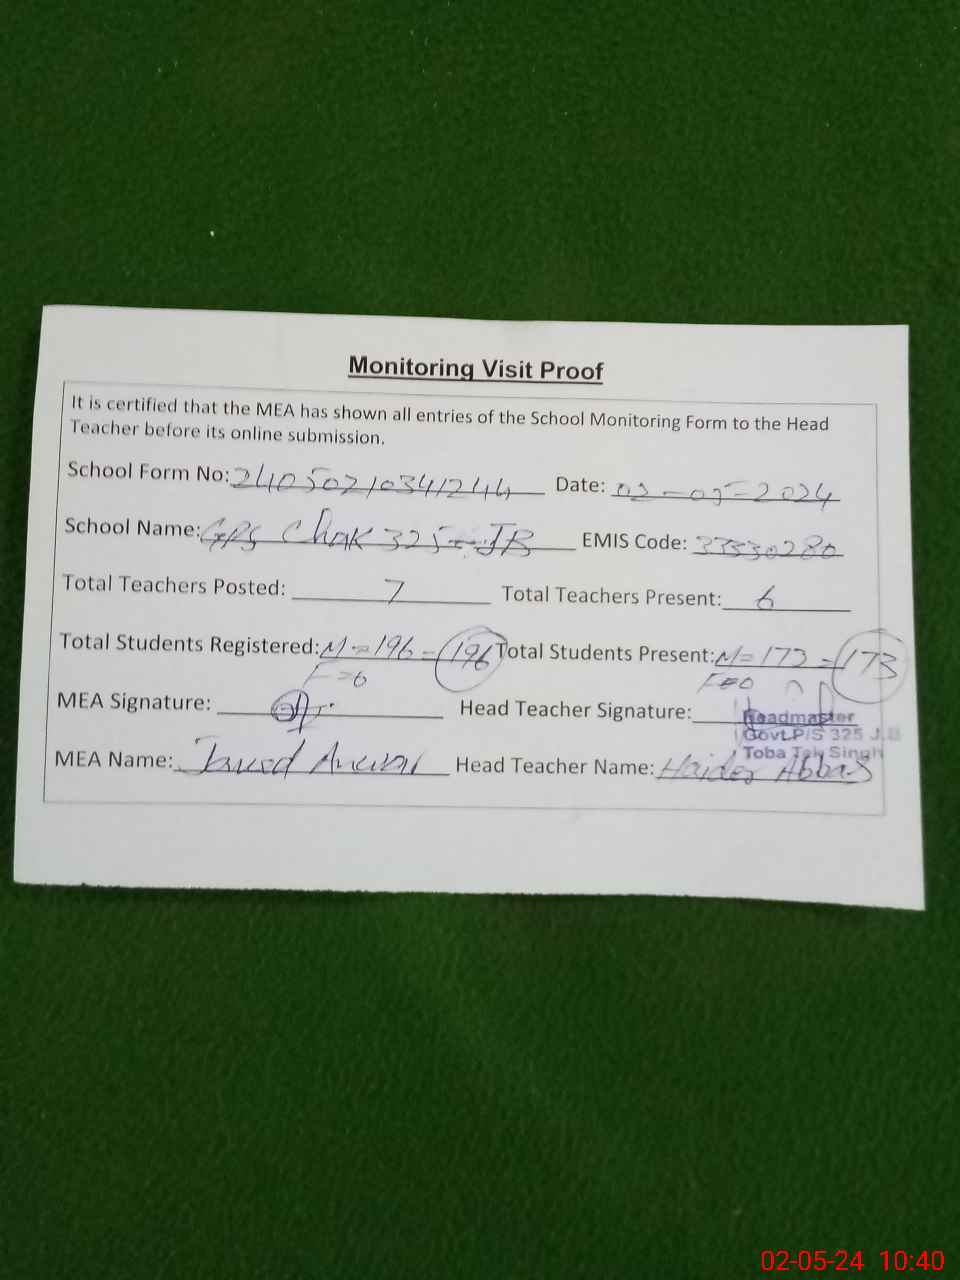 Monitoring Visit Proof
It is certified that the MEA has shown all entries of the School Monitoring Form to the Head
Teacher before its online submission.
School Form No: 24050210341244 Date: 02-05-2024
School Name: GPS Chak 325-JB EMIS Code: 33530280
Total Teachers Posted: 7 Total Teachers Present: 6
Total Students Registered: M=196=196 Total Students Present: M=173=173
F=0 F=0
MEA Signature: Head Teacher Signature:
Headmaster
Govt.P/S 325 J.B
Toba Tek Singh
MEA Name: Javed Anwar Head Teacher Name: Haider Abbas
02-05-24 10:40